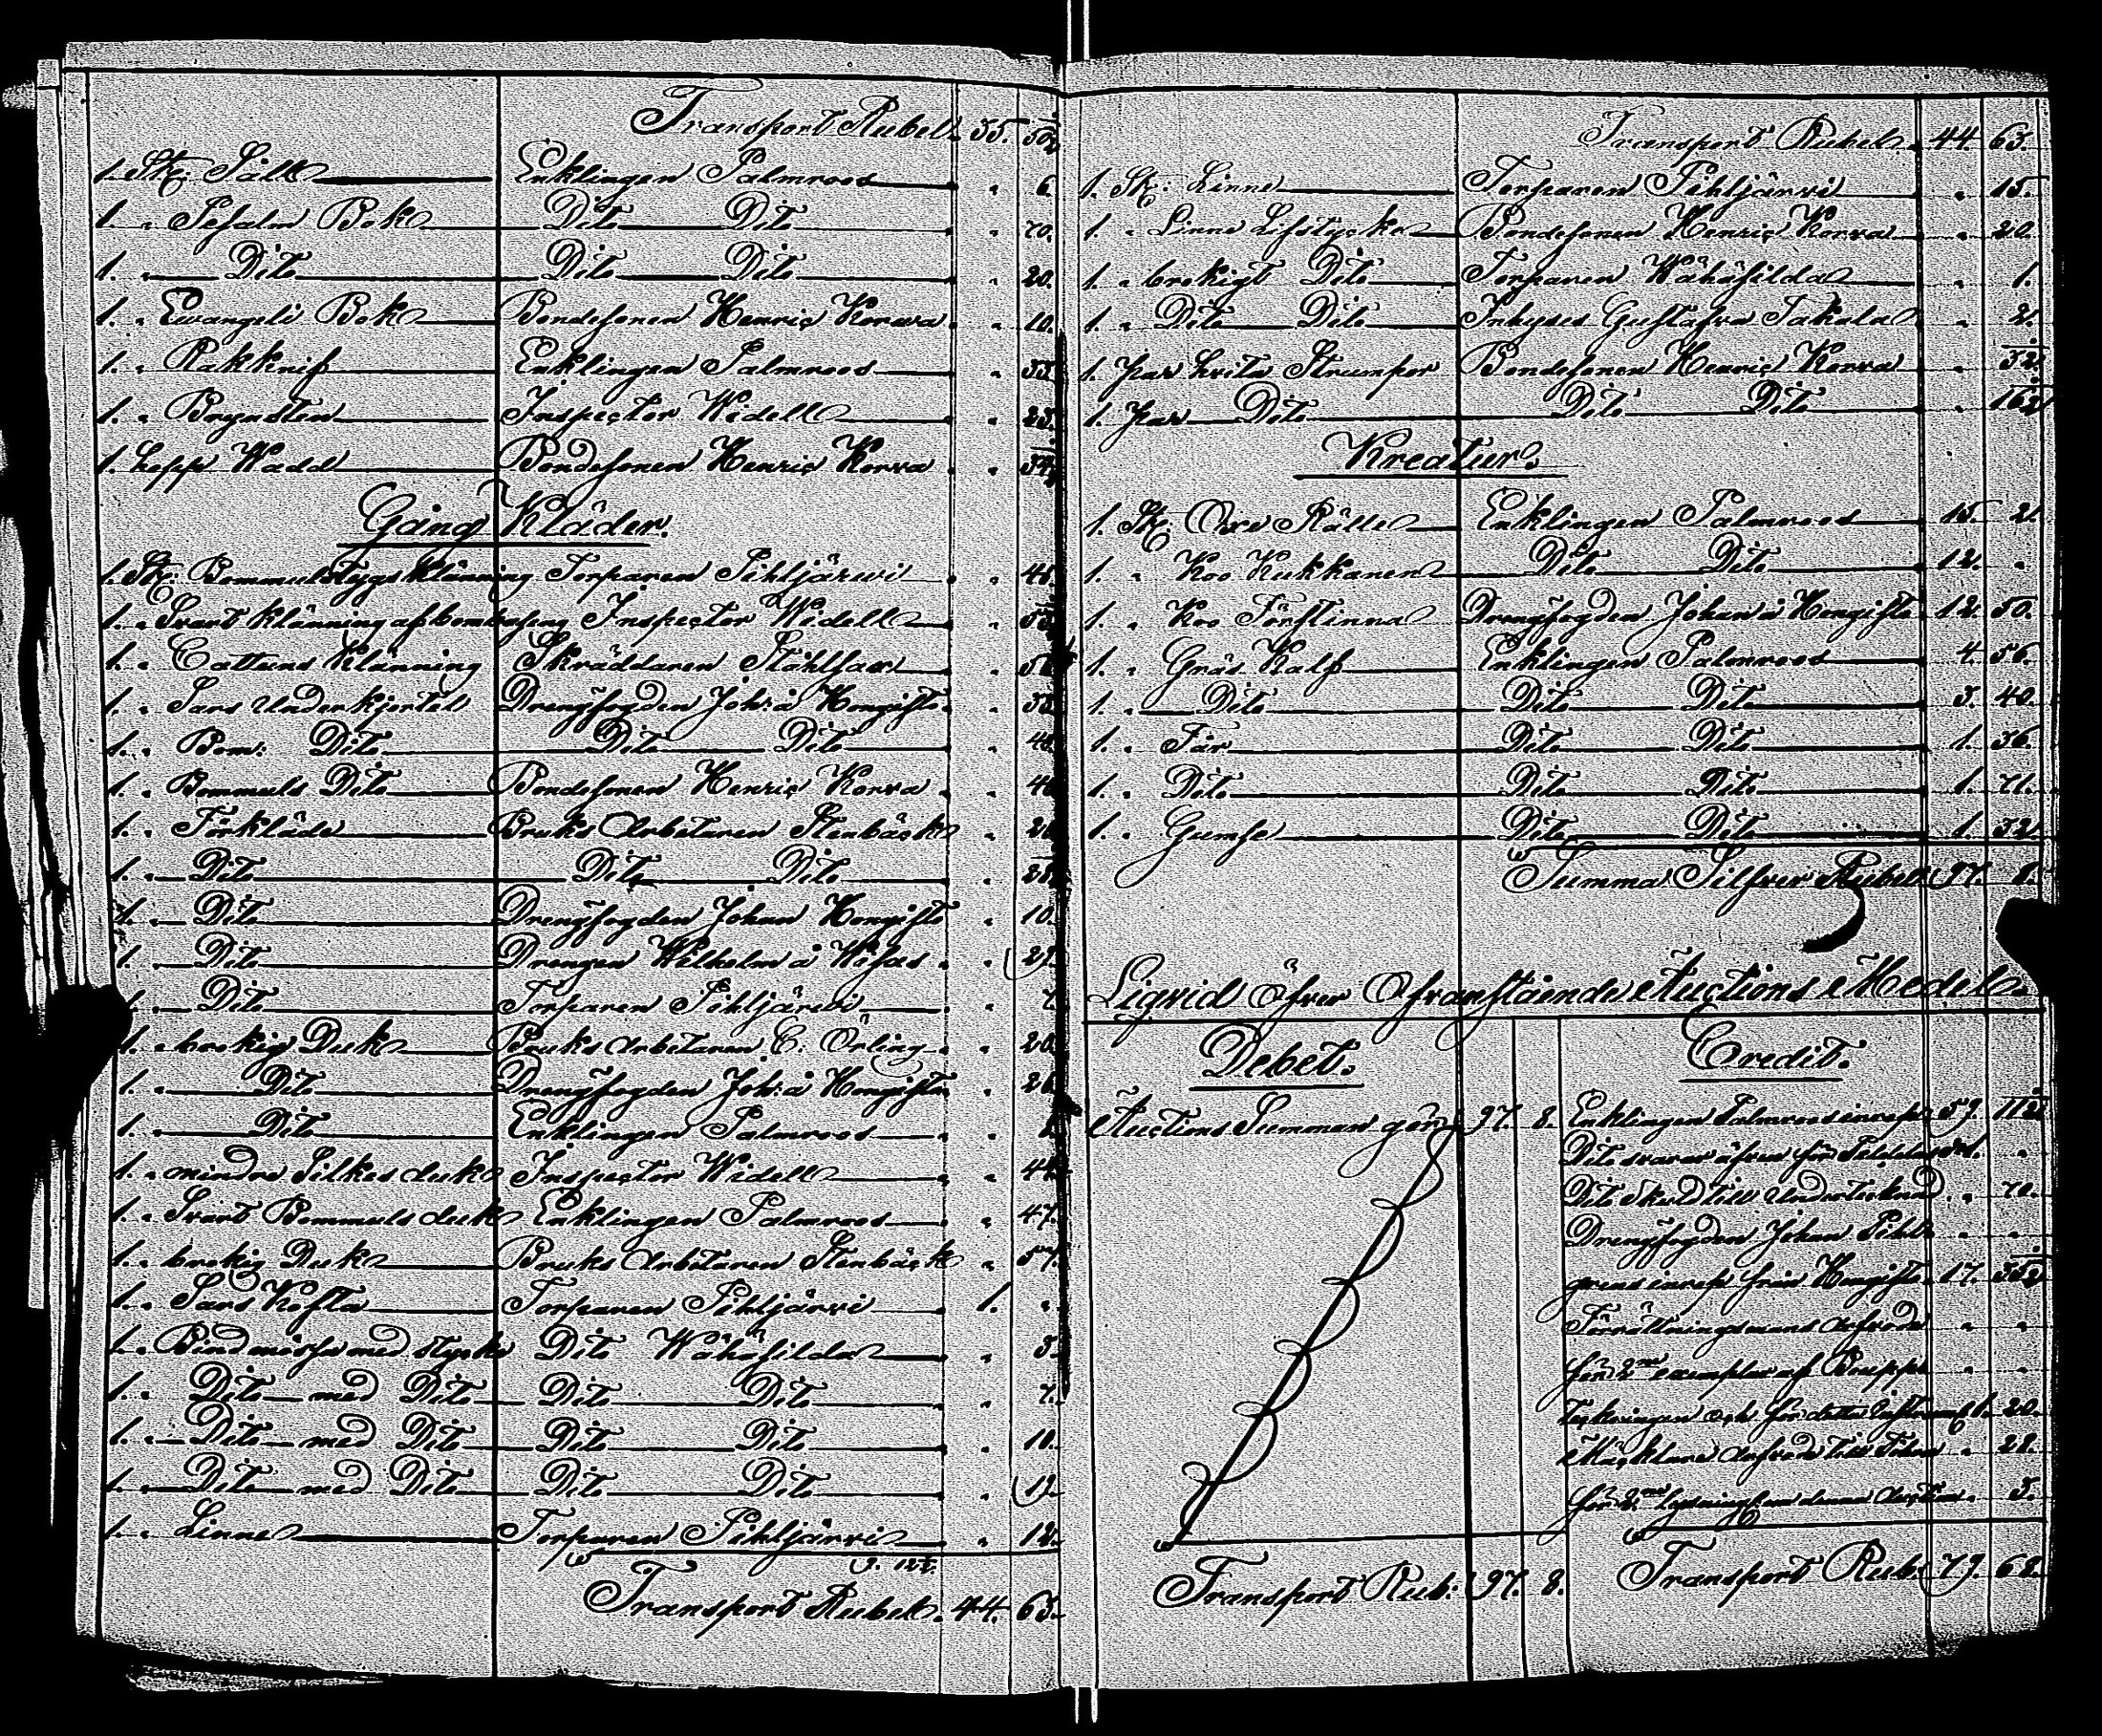 Transport Rubel. 35. 50½
1. St: Såll Enklingen Palmroos " 6.
1. " Psalm Bok Dito Dito " 70.
1. " Dito Dito Dito " 20.
1. " Evangeli Bok Bondesonen Henric Korva " 10.
1. " Rakknif Enklingen Palmroos " 33.
1. " Brynsten Inspector Widell " 25.
1. Lapp Wadd Bondesonen Henric Korva "
Gång Kläder.
1. St: Bommulstygs Klänning Torparen Pihljärwi "
1. " Svart Klänning af Inspector Widell "
1. " Cattuns Klänning Skräddaren "
1. " Sars Underkjortel Drengfogden Joh: å Hongisto "
1. " Bom: Dito Dito Dito "
1. " Bommuls Dito Bondesonen Henric Korva "
1. " Förkläde Bruks Arbetaren Stenbäck "
1. " Dito Dito Dito "
1. " Dito Drengfogden Johan Hongisto " 10.
1. " Dito Drengen Wilhelm å "
1. " Dito Torparen Pihljärwi " 7.
1. " brokig Duk Bruks Arbetaren C. Örling " 20.
1. " Dito Drengfogden Joh: å Hongisto " 26.
1. " Dito Enklingen Palmroos "
1. " mindre Silkes duk Inspector Widell "
1. " Svart Bommuls duk Enklingen Palmroos " 47.
1. " brokig Duk Bruks Arbetaren Stenbäck " 57.
1. " Sars Kofta Torparen Pihljärvi 1. "
1. " Bindmössa med stycke Dito Wähäsilda "
1. " Dito med Dito Dito Dito " 7.
1. " Dito med Dito Dito Dito " 10.
1. " Dito med Dito Dito Dito "
1. " Linne Torparen Pihljärvi " 12.
9. 12½.
Transport Rubel. 44. 63.
Transport Rubel. 44. 63.
1. St: Linne Torparen Pihljärvi " 15.
1. " Linne Lifstycke Bondesonen Henric Korva " 20.
1. " brokigt Dito Torparen Wähäsilda " 1.
1. " Dito Dito Inhyses Gustafva Takala " 2.
1. Par hvita Strumpor Bondesonen Henric Korva "
1. Par Dito Dito Dito "
Kreatur.
1. St: Oxe Enklingen Palmroos 15. 2.
1. " Koo Kukkanen Dito Dito 12. "
1. " Koo Förstinna Drengfogden Johan å Hongisto 12. 50.
1. " Gräs Kalf Enklingen Palmroos 4. 56.
1. " Dito Dito Dito 3. 40.
1. " Får Dito Dito 1. 36.
1. " Dito Dito Dito 1. 71.
1. " Gumse Dito Dito 1. 32.
Summa Silfver Rubel 97. 8.
Liqvid öfver Ofvanstående Auctions Medel.
Debet. Credit.
Auctions Summan gör 97. 8.
Enklingen Palmroos inrop 59. 11½
Dito svarar äfven för
Dito skuld till Undertecknad " 70.
Drengfogden Johan " "
inrop från Hongisto 17. 55½
Förrättningsmans Arfvode " "
för 2ne exemplar af " "
och för detta 20.
Mäcklare Arfvode till " 28.
för 2ne lysningar denna Auction " 3.
Transport Rub: 97. 8.
Transport Rub: 79. 68.